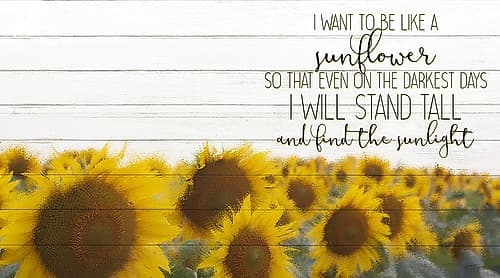 I WANT TO BE LIKE A
sunflower
SO THAT EVEN ON THE DARKEST DAYS
I WILL STAND TALL
and find the sunlight